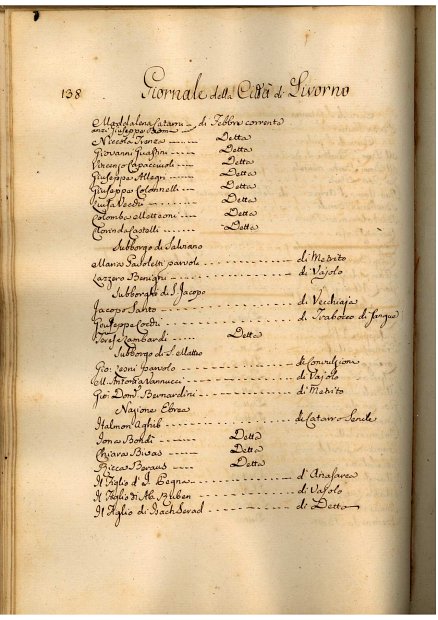 138 Giornale della Città di Livorno
Maddalena Catarsi - di Febbre corrente
anzi Giuseppe Roma
Niccola Tronza ----- Detta
Giovanni Guassini ---- Detta
Vincenzo Capaccioli ---- Detta
Giuseppe Allegri ----- Detta
Giuseppe Colonnelli --- Detta
Luisa Vecchi ......... Detta
Colomba Matteoni ---- Detta
Clorinda Castelli ..... Detta
Subborgo di Salviano
Maria Paoletti parvola ............ di Marito
Lazzero Benighi ............ di Vajolo
Subborgho di S. Jacopo
Jacopo Santo ............ di Vecchiaja
Giuseppe Cocchi ............ di Trabocco di Sangue
Teresa Lombardi ---- Detta
Subborgo di S. Matteo
Gio: Leoni parvolo ............ di Convulsioni
M. Antonia Vannucci ............ di Vajolo
Gio: Dom. Bernardini ............ di Marito
Nazione Ebrea
Halmon Aghib ............ di Catarro Senile
Jona Bondi ------ Detta
Chiara Bivas ----- Detta
Ricca Beraus ---- Detta
Il Figlio d' J. Pegna ............ d' Anasarca
Il Figlio di Ab. Ruben ............ di Vajolo
Il Figlio di Isach Serad ............ di Detto